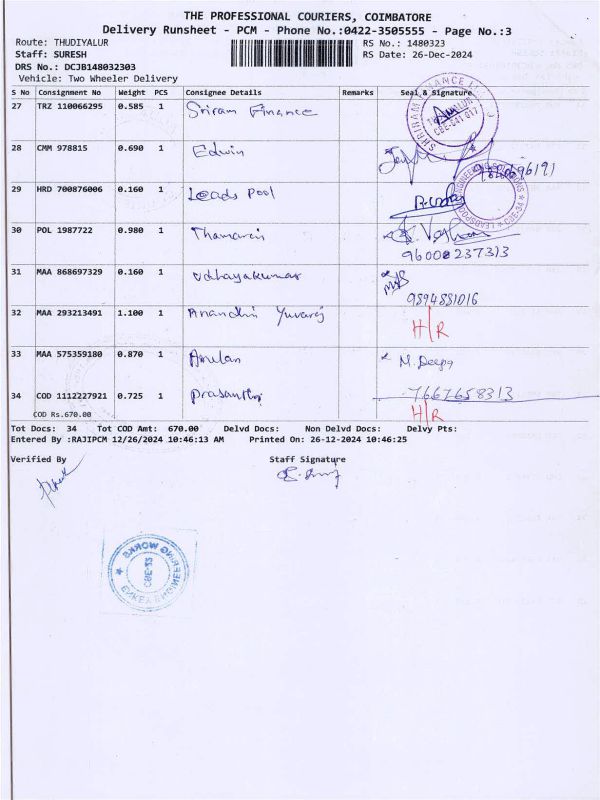 THE PROFESSIONAL COURIERS, COIMBATORE
Delivery Runsheet - PCM - Phone No.:0422-3505555 - Page No.:3
Route: THUDIYALUR RS No.: 1480323
Staff: SURESH RS Date: 26-Dec-2024
DRS No.: DCJB148032303
Vehicle: Two Wheeler Delivery
S No Consignment No Weight PCS Consignee Details Remarks Seal & Signature
27 TRZ 110066295 0.585 1 Sriram Finance
28 CMM 978815 0.690 1 Edwin
29 HRD 700876006 0.160 1 Leads Pool
30 POL 1987722 0.980 1 Thamarai
96008237313
31 MAA 868697329 0.160 1 Udhayakumar
9894881016
32 MAA 293213491 1.100 1 Anandhi Yuvaraj H/R
33 MAA 575359180 0.870 1 M. Deepa
7667658313
34 COD 1112227921 0.725 1 Prasanth H/R
COD Rs.670.00
Tot Docs: 34 Tot COD Amt: 670.00 Delvd Docs: Non Delvd Docs: Delvy Pts:
Entered By :RAJIPCM 12/26/2024 10:46:13 AM Printed On: 26-12-2024 10:46:25
Verified By Staff Signature
ENGINEERING WORKS
CBE-22